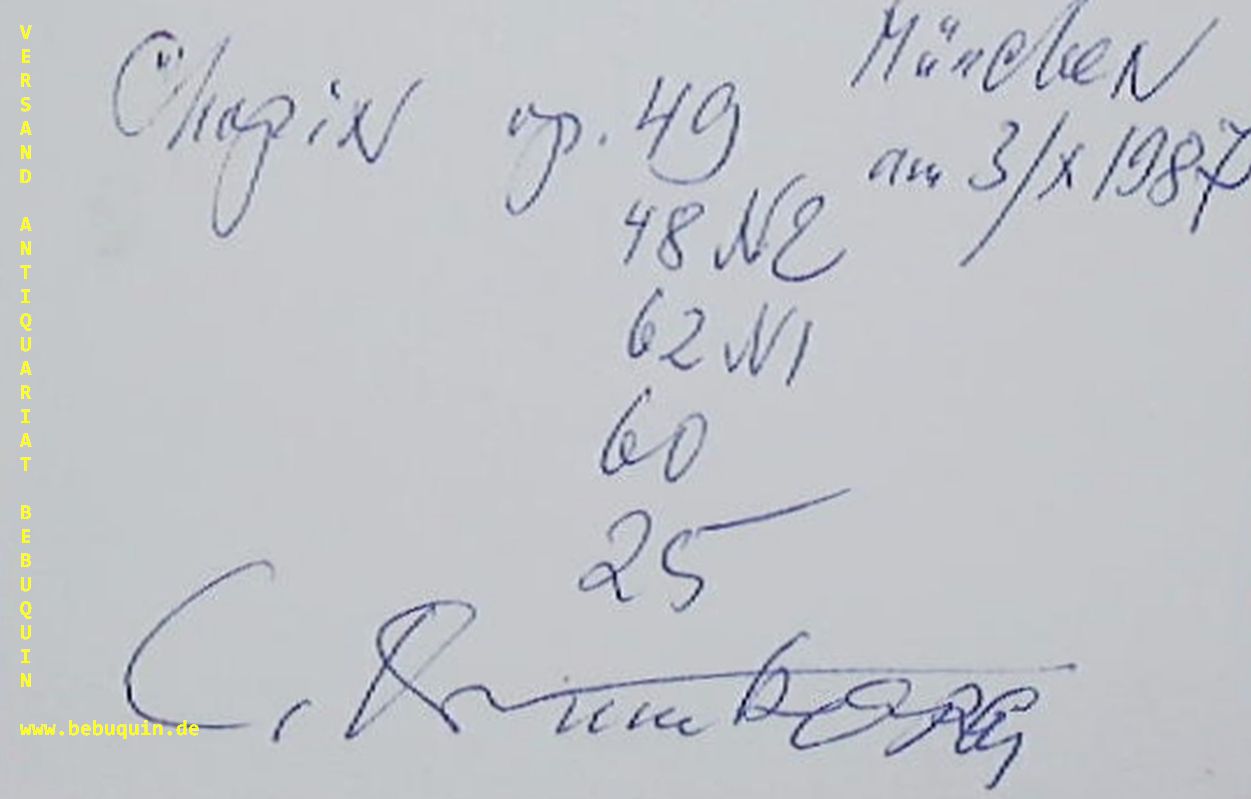 Chopin op. 49
München
am 3/X 1987
48 N2
62 N1
60
25
VERSAND ANTIQUARIAT BEBUQUIN
www.bebuquin.de